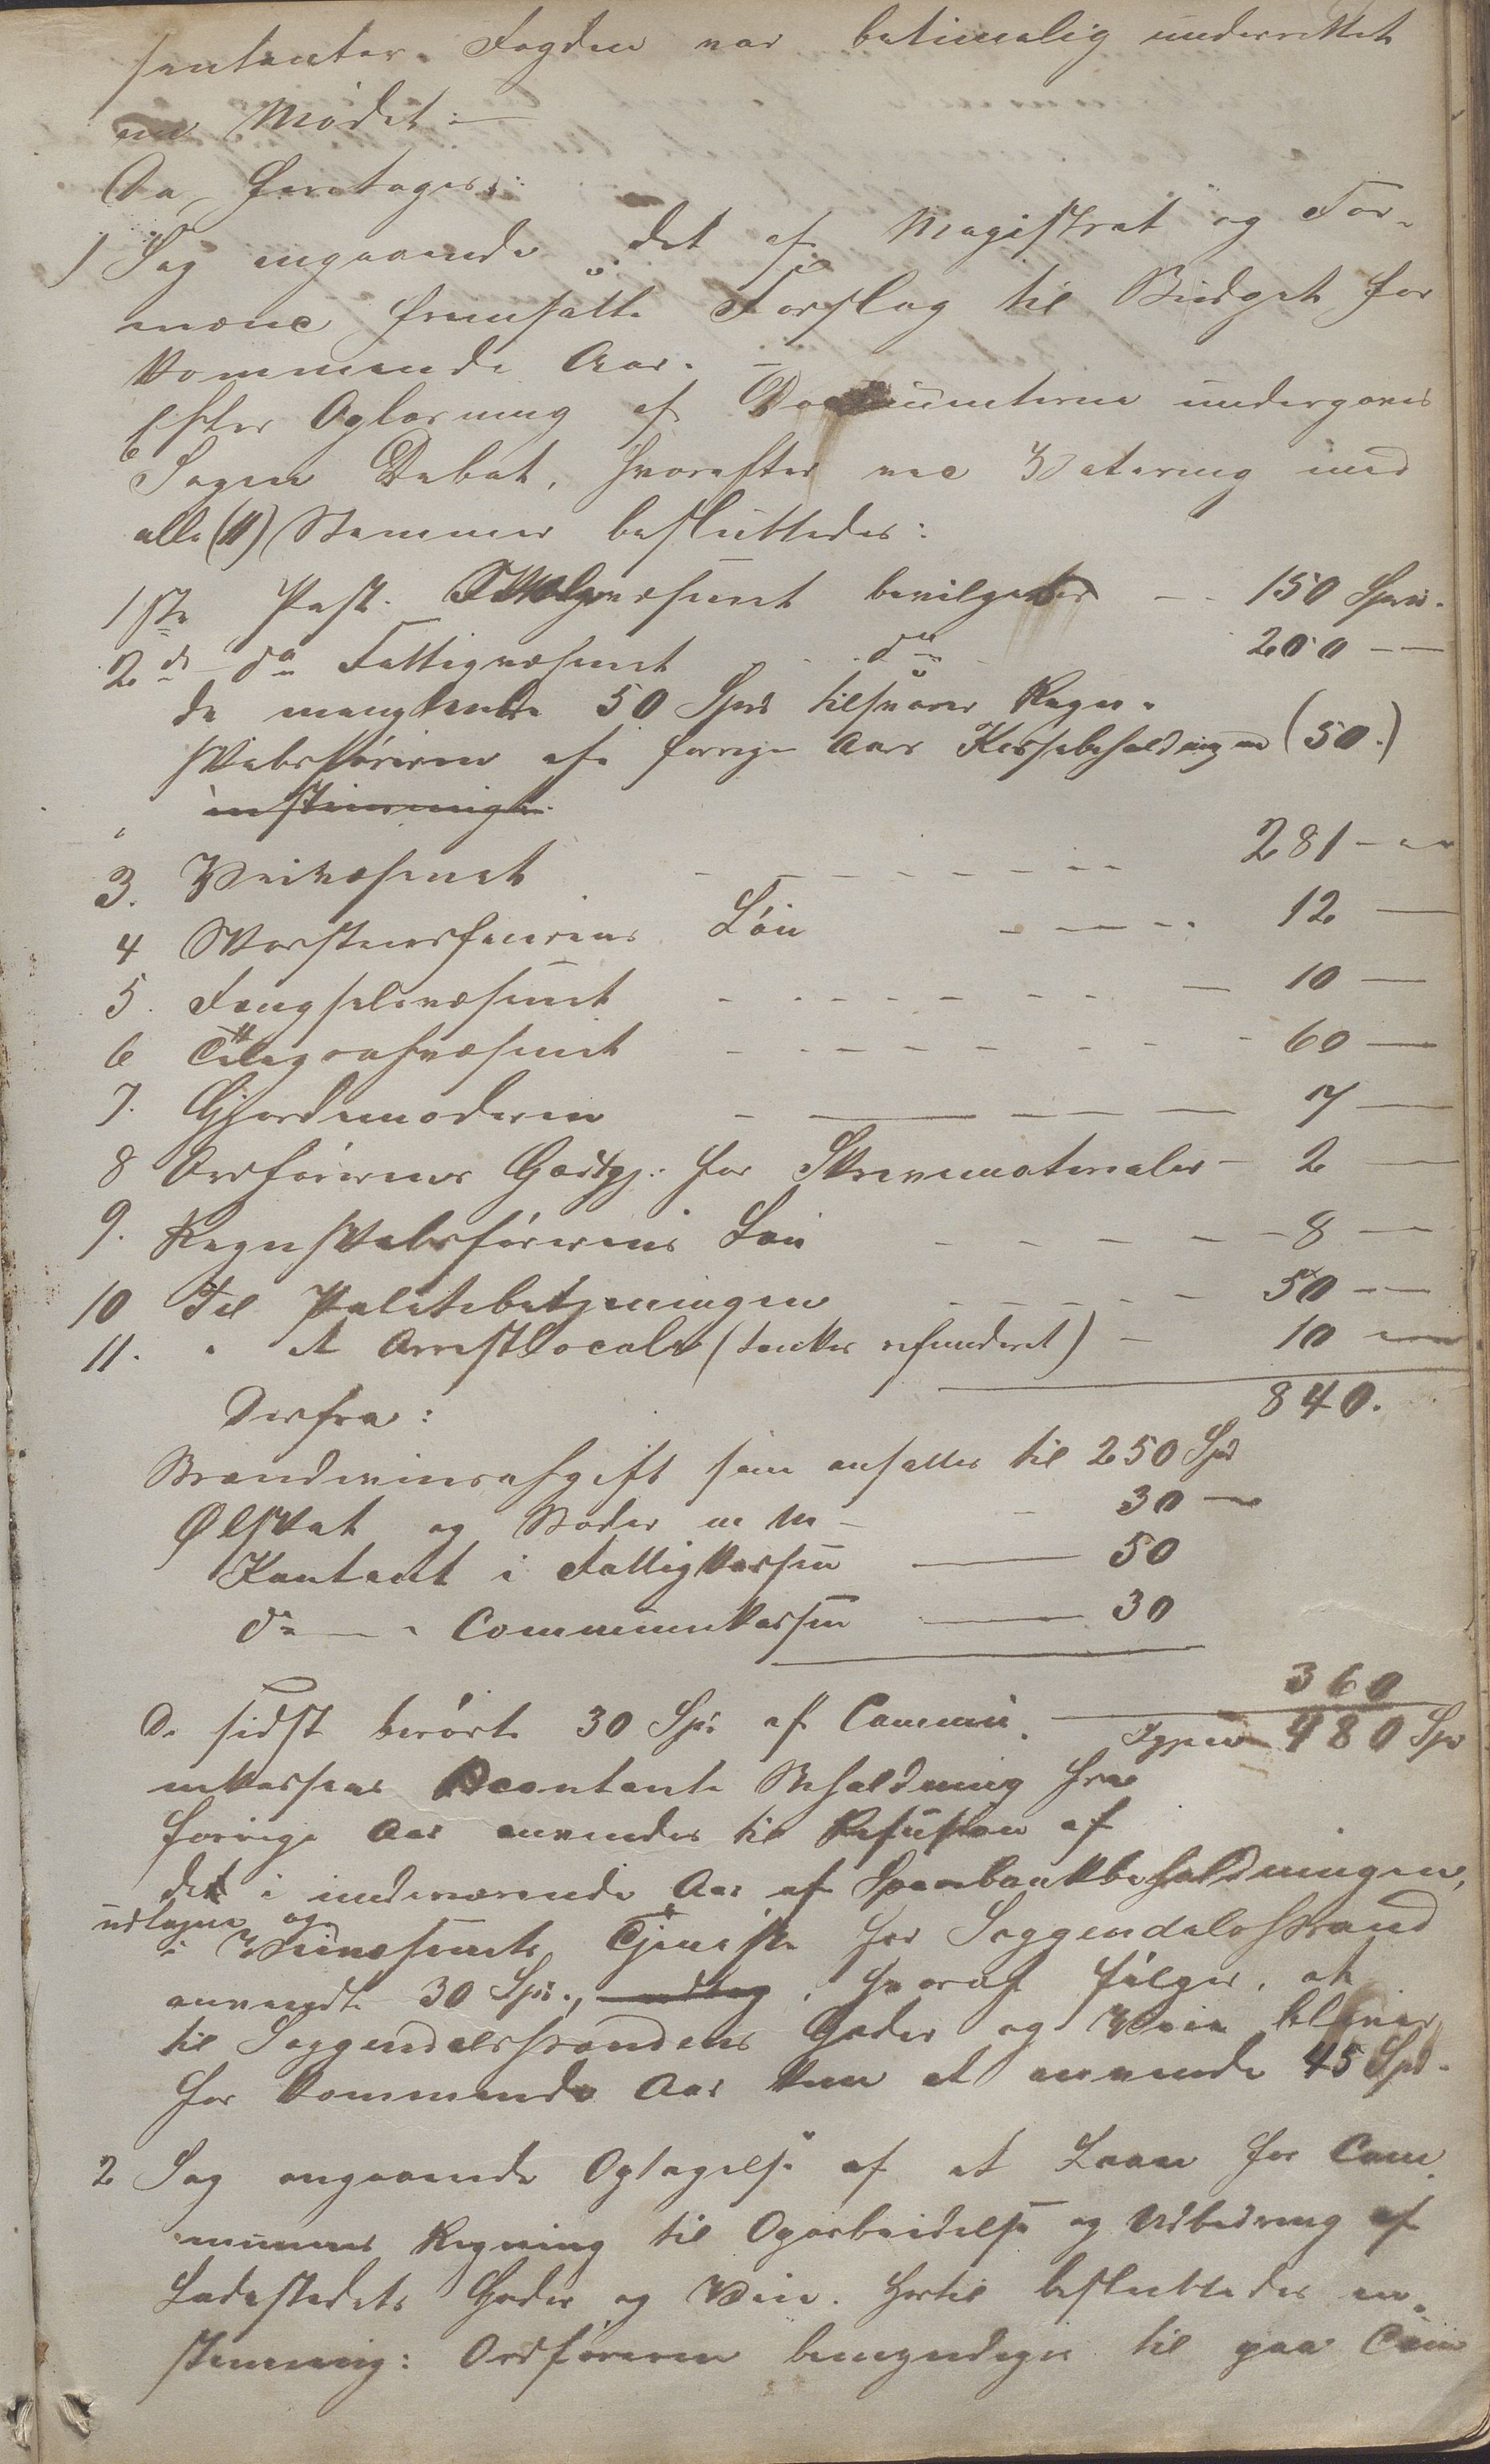 sentanter. Fogden var betimelig underrettet
om Mødet:—
Da foretoges:
1 Sag angaaende det af Magistrat og For-
mænd fremsatte Forslag til Budget for
kommende Aar. —
Efter Oplæsning af Documenterne undergaves
Sagen Debat, hvorefter ved Votering med
alle (11) Stemmer besluttedes:
1ste Post. Skolevæsenet bevilgedes — 150 Spd.
2d do Fattigvæsenet do 200 —
de manglende 50 Spd tilsvarer Regn-
skabsføreren af forrige Aars Kassebeholdning (50.)
3. Veivæsenet — 281 —
4 Skorsteensfeierens Løn — 12 —
5. Fængselsvæsenet — 10 —
6 Telegrafvæsenet — 60 —
7. Gjordemoderen — 7 —
8 Ordførerens Godtgj. for Skrivematerialer — 2 —
9. Regnskabsførerens Løn — 8 —
10 Til Politibetjeningen — 50 —
11. " et Arrestlocale (tænkes refunderet) — 10 —
840.
Derfra:
Brændevinsafgift som ansættes til 250 Spd
Ølskat og Bøder m m — 30 —
Kontant i Fattigkassen — 50
do — " Communekassen — 30
360
De sidst berørte 30 Spd af Commu- Igjen 480 Spd
nekassens contante Beholdning fra
forrige Aar anvendes til Refusion af
det i indeværende Aar af Sparebankbeholdningen,
udlagne og
i Veivæsenets Tjeneste for Soggendalsstrand
anvendte 30 Spd., hvoraf følger, at
til Soggendalsstrandens Gader og Veie bliver
for kommende Aar kun at anvende 45 Spd.
2 Sag angaaende Optagelse af et Laan for Com-
munens Regning til Oparbeidelse og Udbedring af
Ladestedets Gader og Veie. Hertil besluttedes en-
stemmig: Ordføreren bemyndiges til paa Com